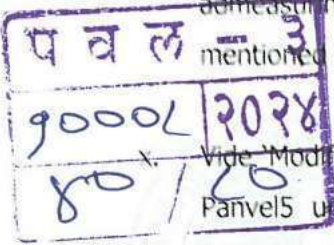 प व ल - ३ mentioned
१०००८ २०२४
x. Vide 'Modif
४० / ८०
Panvel5 u